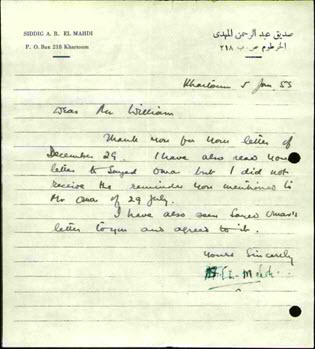 SIDDIG A. R. EL MAHDI
P. O. Box 218 Khartoum
صديق عبد الرحمن المهدى
الخرطوم ص. ب ٢١٨
Khartoum 5 Jan 55
Dear Mr William
Thank you for your letter of
December 29. I have also read your
letter to Sayed Omar but I did not
receive the reminder you mentioned to
Mr Omar of 29 July.
I have also seen Sayed Omar's
letter to you and agreed to it.
Yours Sincerely
El-Mahdi